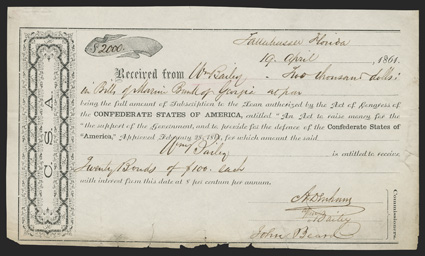 $2000
Tallahassee Florida
19 April , 1861.
Received from Wm Bailey - Two thousand dollars
in Bills of Marine Bank of Georgia at par
being the full amount of Subscription to the Loan authorized by the Act of Congress of
the CONFEDERATE STATES OF AMERICA, entitled "An Act to raise money for the
"the support of the Government, and to provide for the defence of the Confederate States of
"America," Approved February 28, 1861, for which amount the said
Wm Bailey is entitled to receive
Twenty Bonds of $100. each
with interest from this date at 8 per centum per annum.
Wm Bailey
John Beard
Commissioners.
C. S. A.